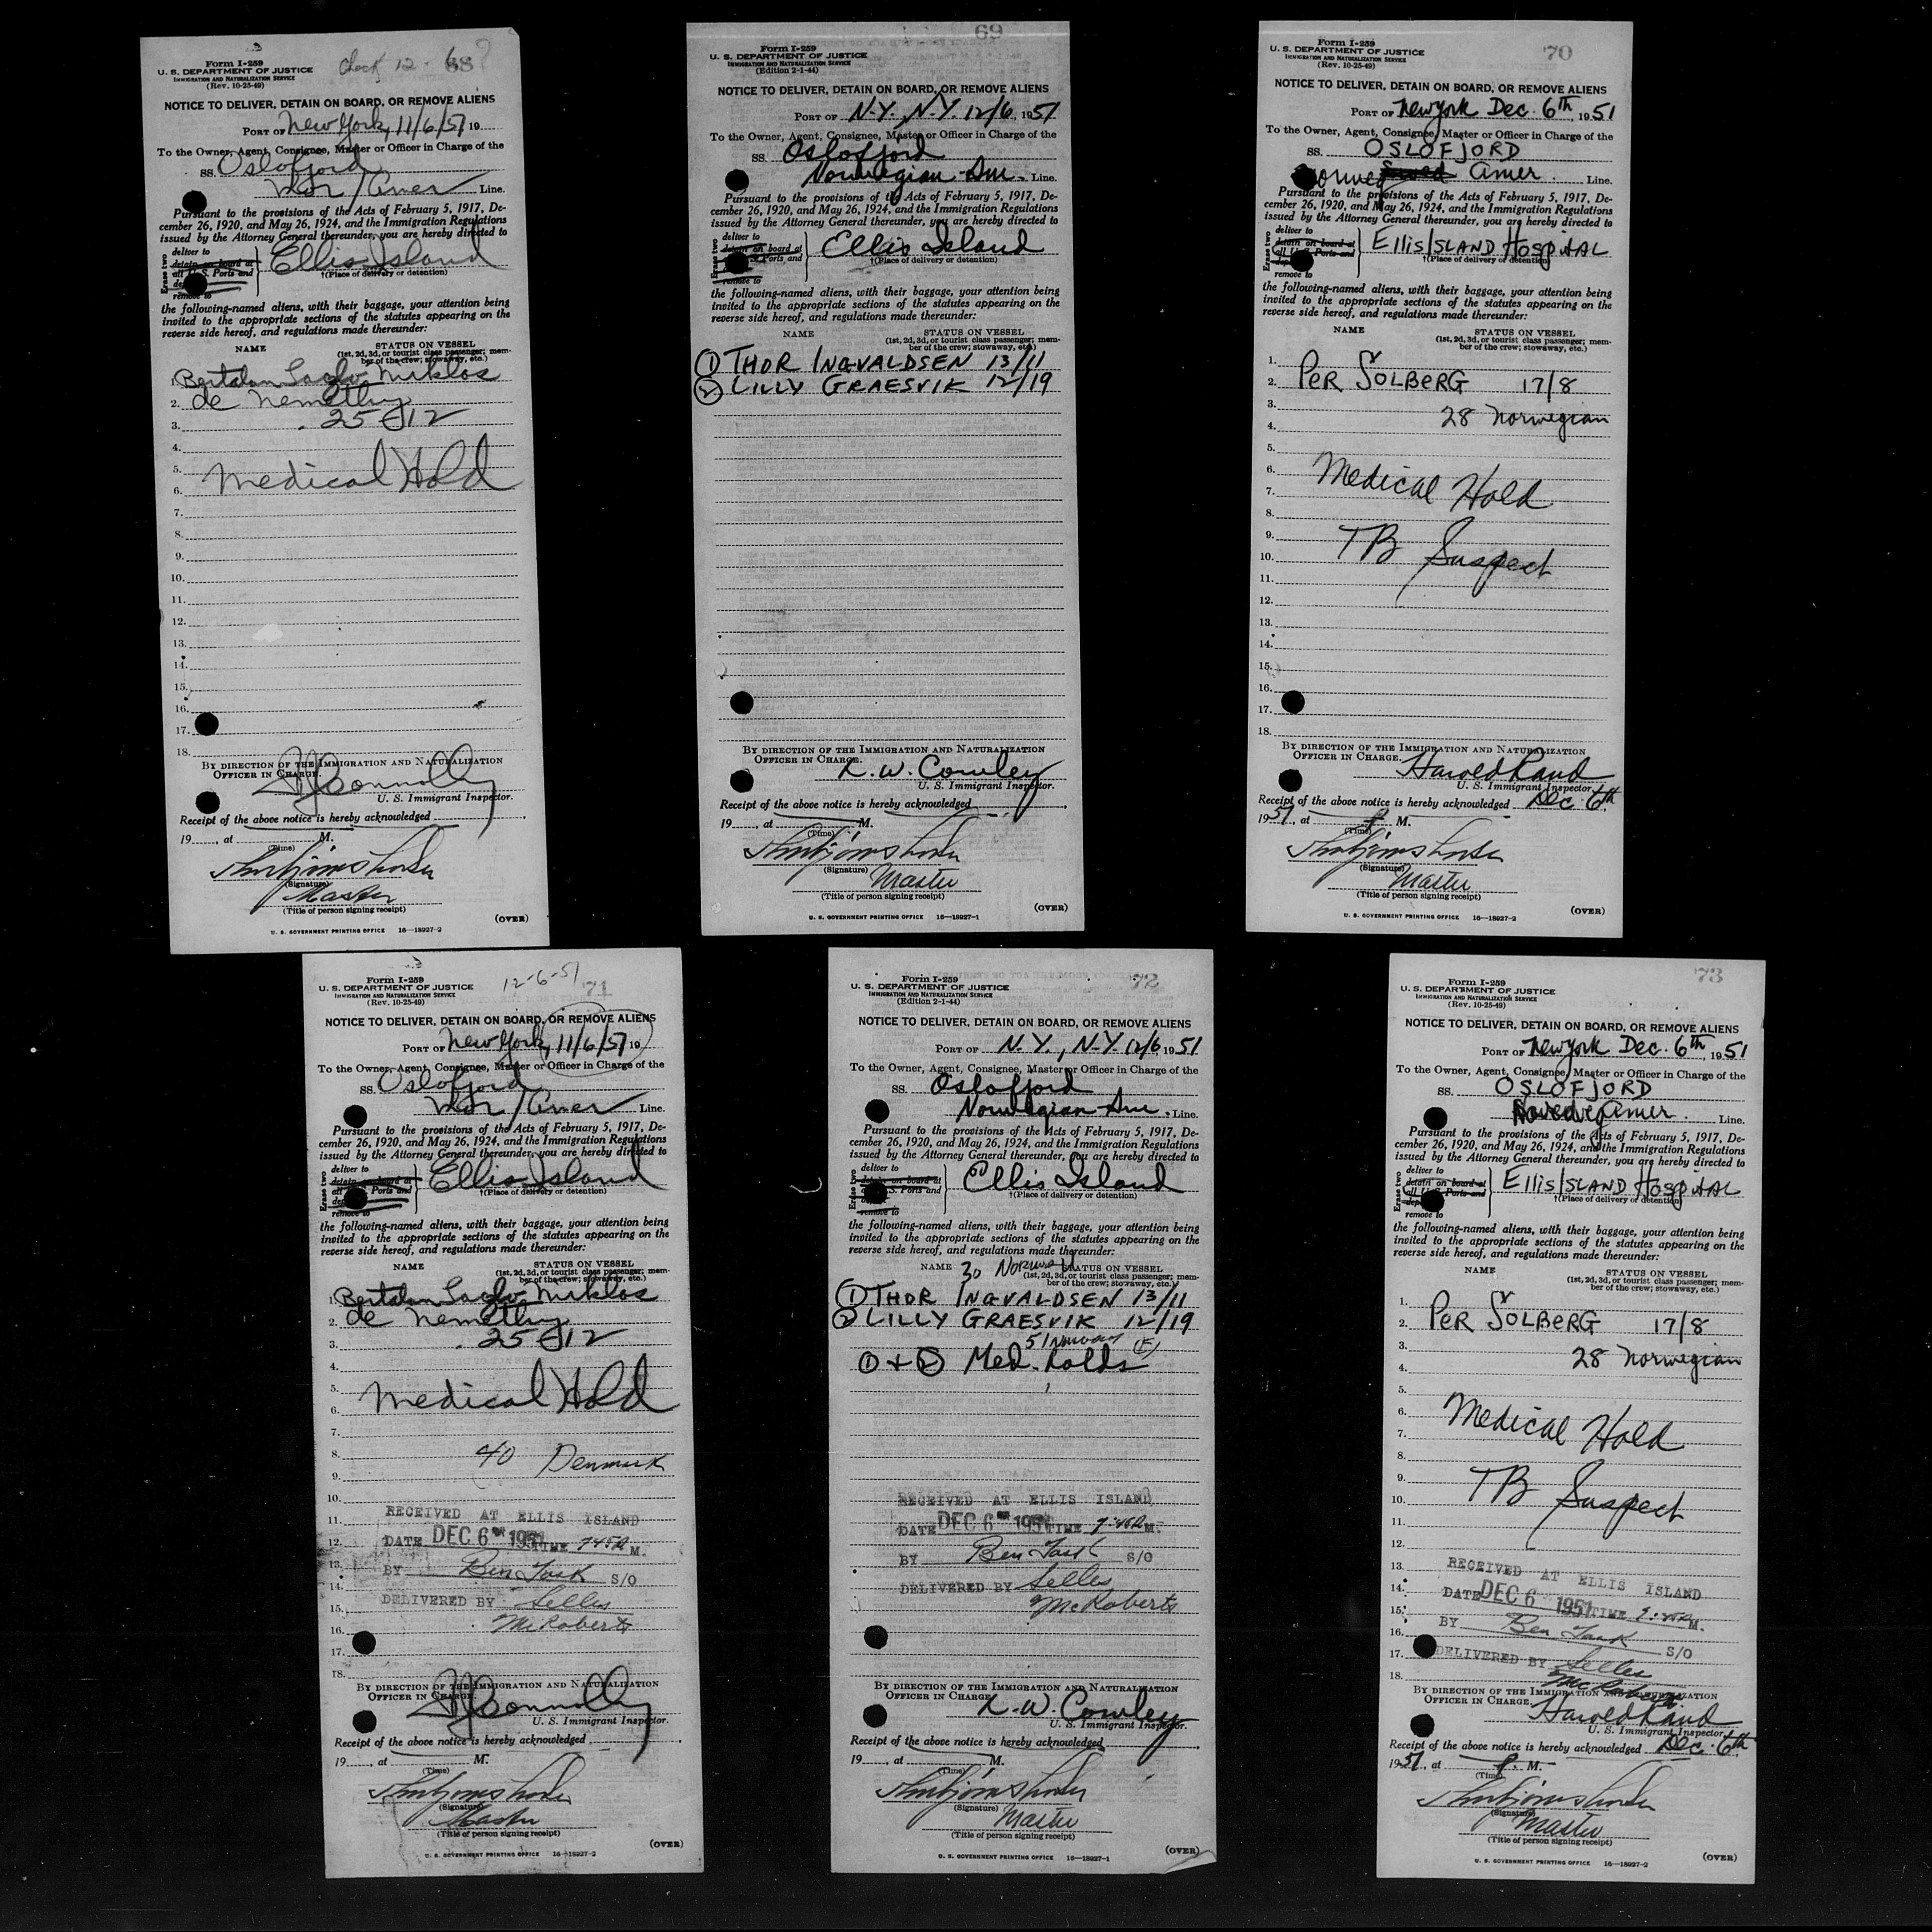 Check 12-
68
Form I-259
U. S. DEPARTMENT OF JUSTICE
IMMIGRATION AND NATURALIZATION SERVICE
(Rev. 10-25-49)
NOTICE TO DELIVER, DETAIN ON BOARD, OR REMOVE ALIENS
PORT OF New York, 11/6/51 19
To the Owner, Agent, Consignee, Master or Officer in Charge of the
SS. Oslofjord
Nor/Amer Line.
Pursuant to the provisions of the Acts of February 5, 1917, De-
cember 26, 1920, and May 26, 1924, and the Immigration Regulations
issued by the Attorney General thereunder, you are hereby directed to
Erase two
deliver to
detain on board at
all U. S. Ports and
remove to
Ellis Island
†(Place of delivery or detention)
the following-named aliens, with their baggage, your attention being
invited to the appropriate sections of the statutes appearing on the
reverse side hereof, and regulations made thereunder:
NAME STATUS ON VESSEL
(1st, 2d, 3d, or tourist class passenger; mem-
ber of the crew; stowaway, etc.)
1. Bertalan Laszlo Miklos
2. de Nemethy
3. 25-12
4.
5.
6. Medical Hold
7.
8.
9.
10.
11.
12.
13.
14.
15.
16.
17.
18.
BY DIRECTION OF THE IMMIGRATION AND NATURALIZATION
OFFICER IN CHARGE.
Connolly
U. S. Immigrant Inspector.
Receipt of the above notice is hereby acknowledged
19 , at M.
(Time)
(Signature)
Master
(Title of person signing receipt)
(OVER)
U. S. GOVERNMENT PRINTING OFFICE 16—18927-2
69
Form I-259
U. S. DEPARTMENT OF JUSTICE
IMMIGRATION AND NATURALIZATION SERVICE
(Edition 2-1-44)
NOTICE TO DELIVER, DETAIN ON BOARD, OR REMOVE ALIENS
PORT OF N.Y., N.Y. 12/6, 1951
To the Owner, Agent, Consignee, Master or Officer in Charge of the
SS. Oslofjord
Norwegian Am. Line.
Pursuant to the provisions of the Acts of February 5, 1917, De-
cember 26, 1920, and May 26, 1924, and the Immigration Regulations
issued by the Attorney General thereunder, you are hereby directed to
Erase two
deliver to
detain on board at
Ports and
Ellis Island
†(Place of delivery or detention)
the following-named aliens, with their baggage, your attention being
invited to the appropriate sections of the statutes appearing on the
reverse side hereof, and regulations made thereunder:
NAME STATUS ON VESSEL
(1st, 2d, 3d, or tourist class passenger; mem-
ber of the crew; stowaway, etc.)
1 THOR INGVALDSEN 13/11
2 LILLY GRAESVIK 12/19
BY DIRECTION OF THE IMMIGRATION AND NATURALIZATION
OFFICER IN CHARGE.
K. W. Cowley
U. S. Immigrant Inspector.
Receipt of the above notice is hereby acknowledged
19 , at M.
(Time)
(Signature)
Master
(Title of person signing receipt)
(OVER)
U. S. GOVERNMENT PRINTING OFFICE 16—18927-1
70
Form I-259
U. S. DEPARTMENT OF JUSTICE
IMMIGRATION AND NATURALIZATION SERVICE
(Rev. 10-25-49)
NOTICE TO DELIVER, DETAIN ON BOARD, OR REMOVE ALIENS
PORT OF New York Dec. 6th, 1951
To the Owner, Agent, Consignee, Master or Officer in Charge of the
SS. OSLOFJORD
Amer. Line.
Pursuant to the provisions of the Acts of February 5, 1917, De-
cember 26, 1920, and May 26, 1924, and the Immigration Regulations
issued by the Attorney General thereunder, you are hereby directed to
Erase two
deliver to
detain on board at
all U. S. Ports and
remove to
ELLIS ISLAND HOSPITAL
†(Place of delivery or detention)
the following-named aliens, with their baggage, your attention being
invited to the appropriate sections of the statutes appearing on the
reverse side hereof, and regulations made thereunder:
NAME STATUS ON VESSEL
(1st, 2d, 3d, or tourist class passenger; mem-
ber of the crew; stowaway, etc.)
1.
2. PER SOLBERG 17/8
3.
4. 28 Norwegian
5.
6. Medical Hold
7.
8.
9. TB Suspect
10.
11.
12.
13.
14.
15.
16.
17.
18.
BY DIRECTION OF THE IMMIGRATION AND NATURALIZATION
OFFICER IN CHARGE.
Harold Rand
U. S. Immigrant Inspector.
Receipt of the above notice is hereby acknowledged Dec. 6th
1951, at M.
(Time)
(Signature)
Master
(Title of person signing receipt)
(OVER)
U. S. GOVERNMENT PRINTING OFFICE 16—18927-2
12-6-51
71
Form I-259
U. S. DEPARTMENT OF JUSTICE
IMMIGRATION AND NATURALIZATION SERVICE
(Rev. 10-25-49)
NOTICE TO DELIVER, DETAIN ON BOARD, OR REMOVE ALIENS
PORT OF New York, 11/6/51 19
To the Owner, Agent, Consignee, Master or Officer in Charge of the
SS. Oslofjord
Nor/Amer Line.
Pursuant to the provisions of the Acts of February 5, 1917, De-
cember 26, 1920, and May 26, 1924, and the Immigration Regulations
issued by the Attorney General thereunder, you are hereby directed to
Erase two
deliver to
detain on board at
all Ports and
remove to
Ellis Island
†(Place of delivery or detention)
the following-named aliens, with their baggage, your attention being
invited to the appropriate sections of the statutes appearing on the
reverse side hereof, and regulations made thereunder:
NAME STATUS ON VESSEL
(1st, 2d, 3d, or tourist class passenger; mem-
ber of the crew; stowaway, etc.)
1. Bertalan Laszlo Miklos
2. de Nemethy
3. 25-12
4.
5.
6. Medical Hold
7.
8. 40 Denmark
9.
10.
11. RECEIVED AT ELLIS ISLAND
12. DATE DEC 6 1951 TIME 7:45P M.
13. BY Ben Task S/O
14.
15. DELIVERED BY Selles
16. McRoberts
17.
18.
BY DIRECTION OF THE IMMIGRATION AND NATURALIZATION
OFFICER IN CHARGE.
Connolly
U. S. Immigrant Inspector.
Receipt of the above notice is hereby acknowledged
19 , at M.
(Time)
(Signature)
Master
(Title of person signing receipt)
(OVER)
U. S. GOVERNMENT PRINTING OFFICE 16—18927-2
72
Form I-259
U. S. DEPARTMENT OF JUSTICE
IMMIGRATION AND NATURALIZATION SERVICE
(Edition 2-1-44)
NOTICE TO DELIVER, DETAIN ON BOARD, OR REMOVE ALIENS
PORT OF N.Y., N.Y. 12/6, 1951
To the Owner, Agent, Consignee, Master or Officer in Charge of the
SS. Oslofjord
Norwegian Am. Line.
Pursuant to the provisions of the Acts of February 5, 1917, De-
cember 26, 1920, and May 26, 1924, and the Immigration Regulations
issued by the Attorney General thereunder, you are hereby directed to
Erase two
deliver to
detain on board at
S. Ports and
remove to
Ellis Island
†(Place of delivery or detention)
the following-named aliens, with their baggage, your attention being
invited to the appropriate sections of the statutes appearing on the
reverse side hereof, and regulations made thereunder:
NAME 30 Norway STATUS ON VESSEL
(1st, 2d, 3d, or tourist class passenger; mem-
ber of the crew; stowaway, etc.)
1 THOR INGVALDSEN 13/11
2 LILLY GRAESVIK 12/19
51 Norway (F)
1 + 2 Med. holds
RECEIVED AT ELLIS ISLAND
DATE DEC 6 1951 TIME 7:45P M.
BY Ben Task S/O
DELIVERED BY Selles
McRoberts
BY DIRECTION OF THE IMMIGRATION AND NATURALIZATION
OFFICER IN CHARGE.
K. W. Cowley
U. S. Immigrant Inspector.
Receipt of the above notice is hereby acknowledged
19 , at M.
(Time)
(Signature)
Master
(Title of person signing receipt)
(OVER)
U. S. GOVERNMENT PRINTING OFFICE 16—18927-1
73
Form I-259
U. S. DEPARTMENT OF JUSTICE
IMMIGRATION AND NATURALIZATION SERVICE
(Rev. 10-25-49)
NOTICE TO DELIVER, DETAIN ON BOARD, OR REMOVE ALIENS
PORT OF New York Dec. 6th, 1951
To the Owner, Agent, Consignee, Master or Officer in Charge of the
SS. OSLOFJORD
Amer. Line.
Pursuant to the provisions of the Acts of February 5, 1917, De-
cember 26, 1920, and May 26, 1924, and the Immigration Regulations
issued by the Attorney General thereunder, you are hereby directed to
Erase two
deliver to
detain on board at
all U. S. Ports and
remove to
ELLIS ISLAND HOSPITAL
†(Place of delivery or detention)
the following-named aliens, with their baggage, your attention being
invited to the appropriate sections of the statutes appearing on the
reverse side hereof, and regulations made thereunder:
NAME STATUS ON VESSEL
(1st, 2d, 3d, or tourist class passenger; mem-
ber of the crew; stowaway, etc.)
1.
2. PER SOLBERG 17/8
3.
4. 28 Norwegian
5.
6. Medical Hold
7.
8.
9. TB Suspect
10.
11.
12.
13. RECEIVED AT ELLIS ISLAND
14. DATE DEC 6 1951 TIME 7:45P M.
15.
16. BY Ben Task S/O
17. DELIVERED BY Selles
18. McRoberts
BY DIRECTION OF THE IMMIGRATION AND NATURALIZATION
OFFICER IN CHARGE.
Harold Rand
U. S. Immigrant Inspector.
Receipt of the above notice is hereby acknowledged Dec. 6th
1951, at M.
(Time)
(Signature)
Master
(Title of person signing receipt)
(OVER)
U. S. GOVERNMENT PRINTING OFFICE 16—18927-2